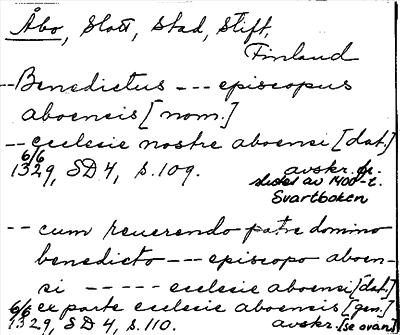 Åbo, Slott, Stad, Stift,
Finland
-- Benedictus --- episcopus
aboensis [nom.]
-- ecclesie nostre aboensi [dat.]
6/6
1329, SD 4, s. 109. avskr. fr.
slutet av 1400-t.
Svartboken
-- cum reuerendo patre domino
benedicto --- episcopo aboen-
si ----- ecclesie aboensi [dat.]
6/6 ex parte ecclesie aboensis [gen.]
1329, SD 4, s. 110. avskr. [se ovan]